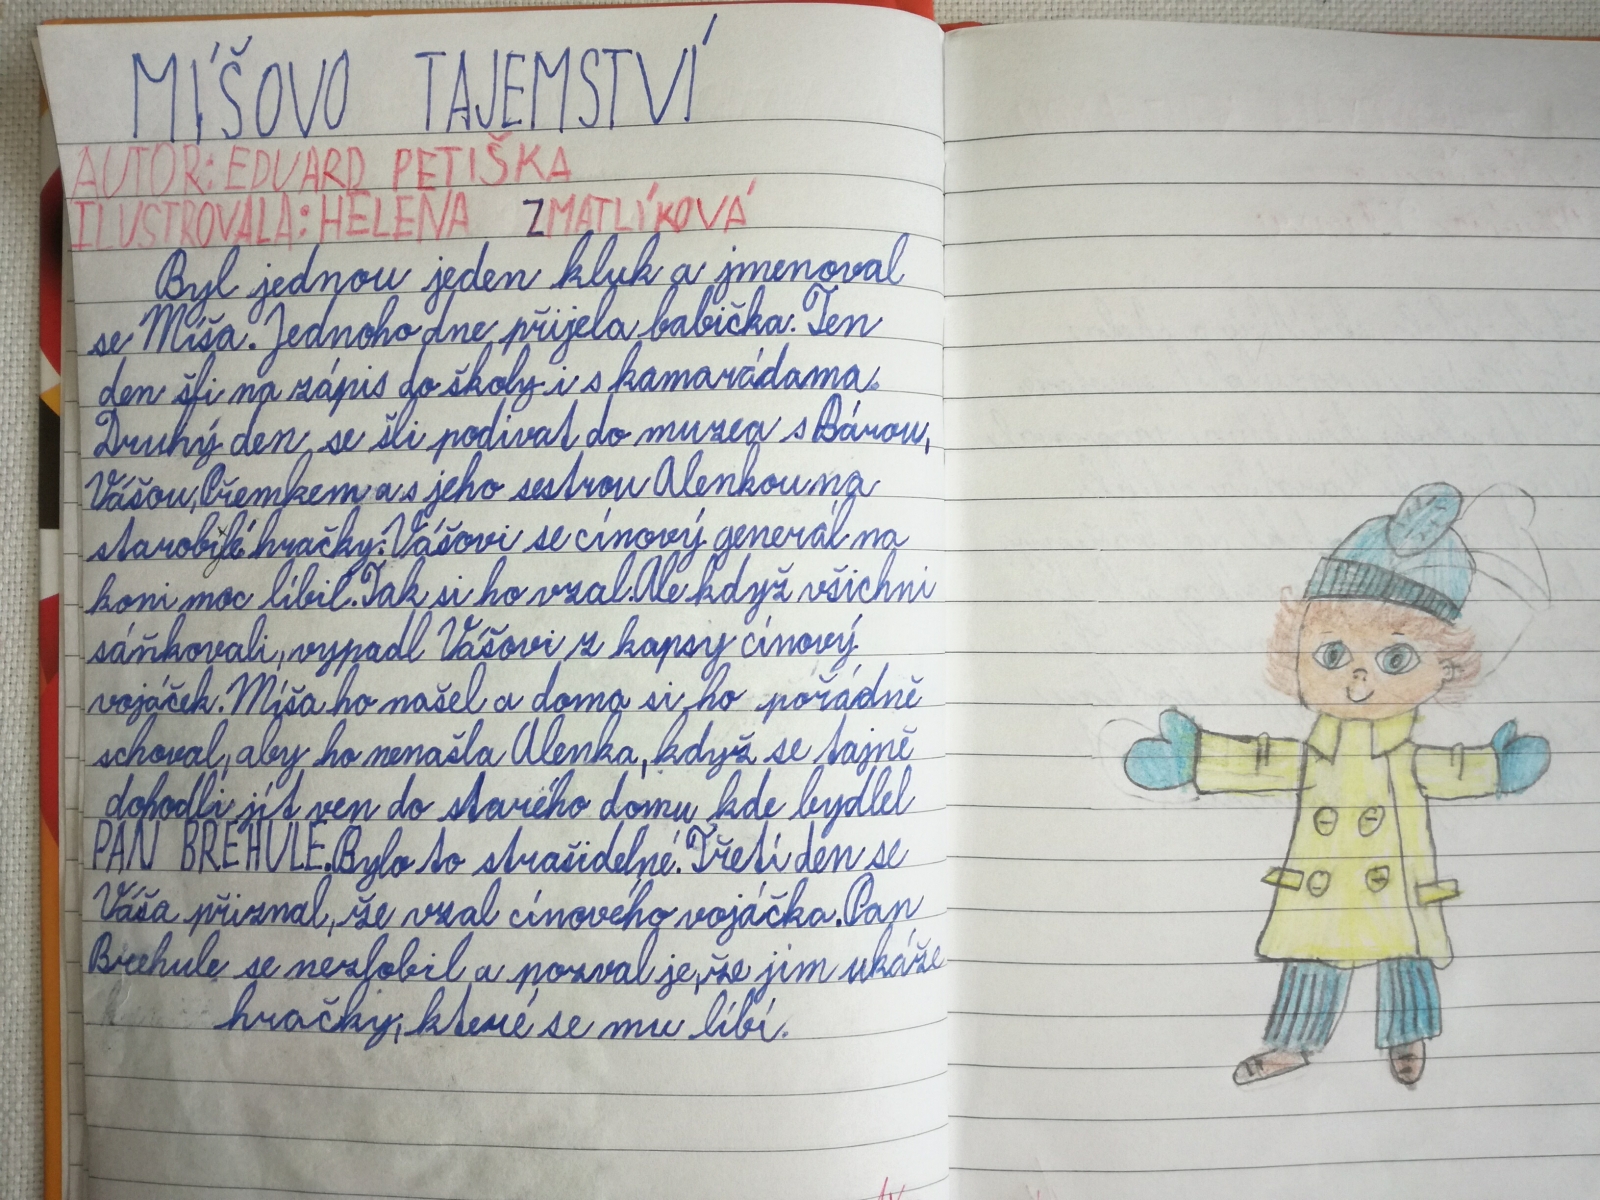 MÍŠOVO TAJEMSTVÍ
AUTOR: EDUARD PETIŠKA
ILUSTROVALA: HELENA ZMATLÍKOVÁ
Byl jednou jeden kluk a jmenoval
se Míša. Jednoho dne přijela babička. Ten
den šli na zápis do školy i s kamarádama.
Druhý den se šli podívat do muzea s Bárou,
Vášou, Přemkem a s jeho sestrou Alenkou na
starobilé hračky. Vášovi se cínový generál na
koni moc líbil. Tak si ho vzal. Ale když všichni
sáňkovali, vypadl Vášovi z kapsy cínový
vojáček. Míša ho našel a doma si ho pořádně
schoval, aby ho nenašla Alenka, když se tajně
dohodli jít ven do starého domu kde bydlel
PAN BREHULE. Bylo to strašidelné. Třetí den se
Váša přiznal, že vzal cínového vojáčka. Pan
Brehule se nezlobil a pozval je, že jim ukáže
hračky, které se mu líbí.